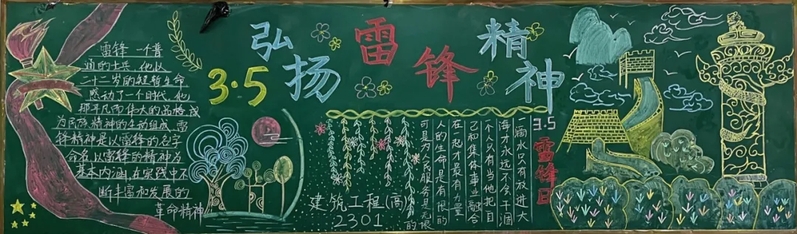 弘扬雷锋精神
3.5
雷锋 一个普
通的士兵，他以
二十二岁的短暂生命
感动了一个时代，他
那平凡而伟大的品格，成
为民族精神的生动组成，雷
锋精神是以雷锋的名字
命名，以雷锋的精神为
基本内涵，在实践中不
断丰富和发展的
革命精神
建筑工程(高)
2301
一滴水只有放进大
海才永远不会干涸
一个人只有当他把自
己和集体事业融合
在一起才最有力量
人的生命是有限的
可是为人民服务是无限的
3.5
雷锋日